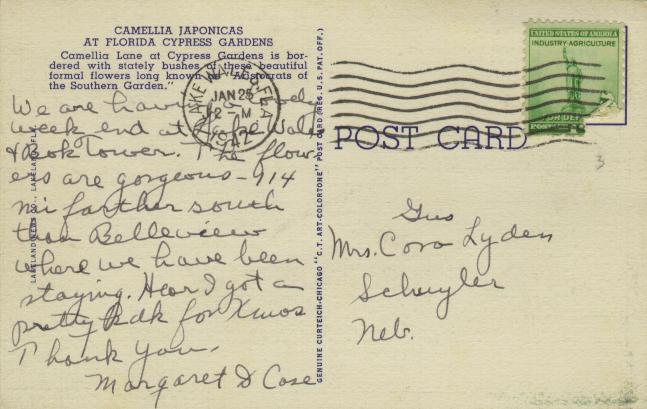 CAMELLIA JAPONICAS
AT FLORIDA CYPRESS GARDENS
Camellia Lane at Cypress Gardens is bor-
dered with stately bushes of these beautiful
formal flowers long known as "Aristocrats of
the Southern Garden."
We are having
week end at Lake Wales
& Bok Tower. The flow
ers are gorgeous - 114
mi farther south
than Belleview
where we have been
staying. Hear I got a
pretty hdk for Xmas
Thank you,
Margaret D Case
LAKE WALES FLA.
JAN 25
2 - M
1942
UNITED STATES OF AMERICA
INDUSTRY AGRICULTURE
FOR DEF
POSTAGE
POST CARD
3
Gus
Mrs. Cora Lyden
Schuyler
Neb.
GENUINE CURTEICH-CHICAGO "C.T. ART-COLORTONE" POST CARD (REG. U.S. PAT. OFF.)
CO., LAKELAND, FLA.